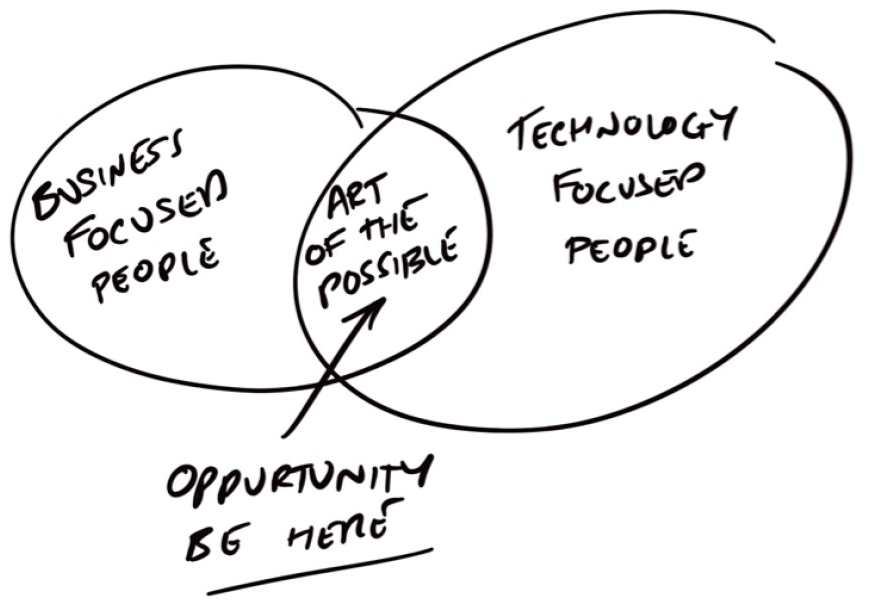 BUSINESS
FOCUSED
PEOPLE
ART
OF THE
POSSIBLE
TECHNOLOGY
FOCUSED
PEOPLE
OPPURTUNITY
BE HERE